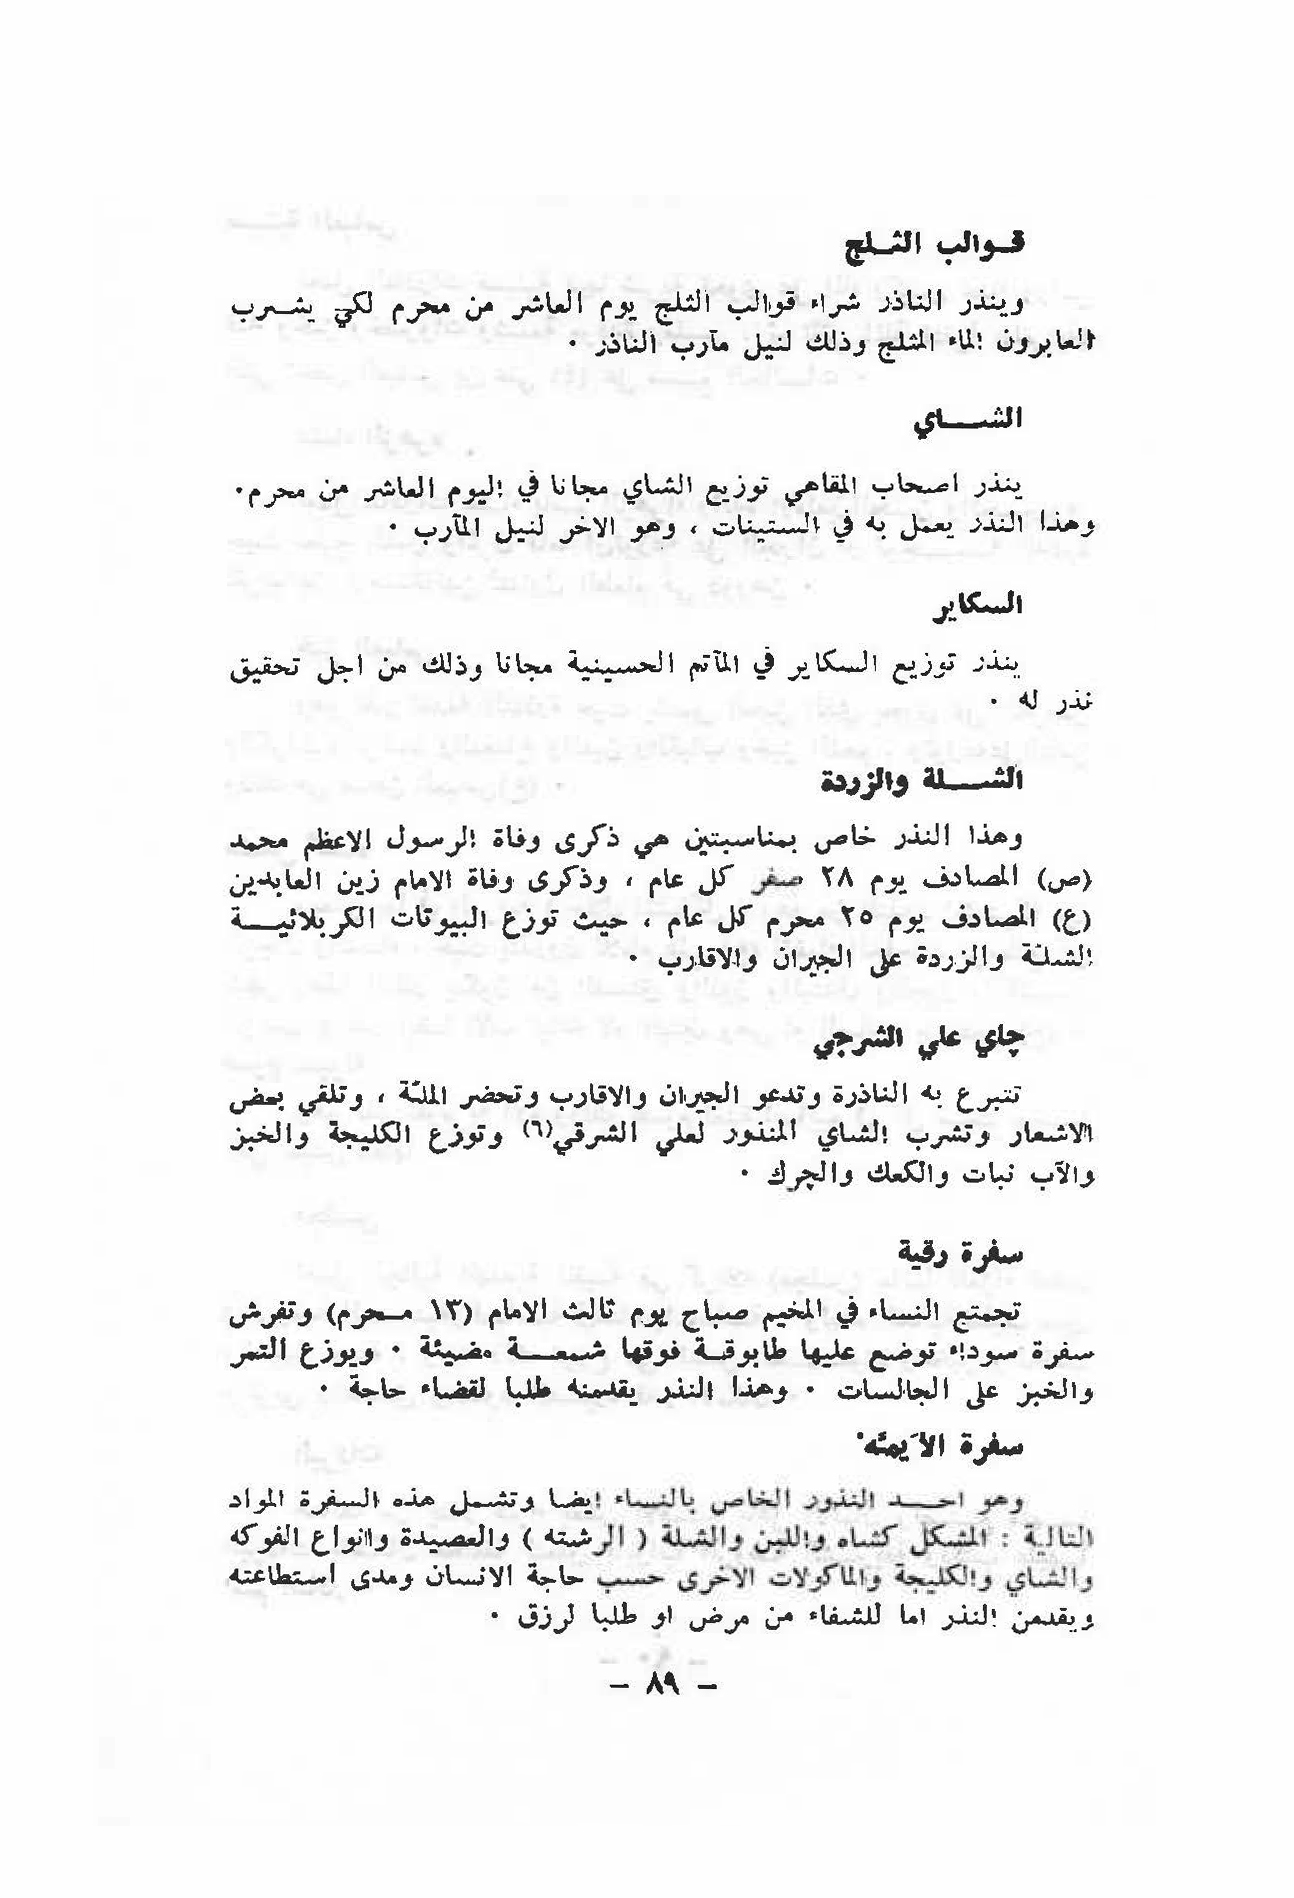 قوالب الثلج
وينذر الناذر شراء قوالب الثلج يوم العاشر من محرم لكي يشرب
العابرون الماء المثلج وذلك لنيل مآرب الناذر ٠
الشاي
ينذر اصحاب المقاهي توزيع الشاي مجانا في اليوم العاشر من محرم٠
وهذا النذر يعمل به في الستينات ، وهو الاخر لنيل المآرب ٠
السكاير
ينذر توزيع السكاير في المآتم الحسينية مجانا وذلك من اجل تحقيق
نذر له ٠
الشلة والزردة
وهذا النذر خاص بمناسبتين هي ذكرى وفاة الرسول الاعظم محمد
(ص) المصادف يوم ٢٨ صفر كل عام ، وذكرى وفاة الامام زين العابدين
(ع) المصادف يوم ٢٥ محرم كل عام ، حيث توزع البيوتات الكربلائية
الشلة والزردة على الجيران والاقارب ٠
چاي علي الشرجي
تتبرع به الناذرة وتدعو الجيران والاقارب وتحضر الملّة ، وتلقي بعض
الاشعار وتشرب الشاي المنذور لعلي الشرقي(٦) وتوزع الكليجة والخبز
والآب نبات والكعك والچرك ٠
سفرة رقية
تجمتع النساء في المخيم صباح يوم ثالث الامام (١٣ محرم) وتفرش
سفرة سوداء توضع عليها طابوقة فوقها شمعة مضيئة ٠ ويوزع التمر
والخبز على الجالسات ٠ وهذا النذر يقدمنه طلبا لقضاء حاجة ٠
سفرة الأيمته
وهو احد النذور الخاص بالنساء ايضا وتشمل هذه السفرة المواد
التالية : المشكل كشاه واللبن والشلة ( الرشته ) والعصيدة وانواع الفوكه
والشاي والكليجة والماكولات الاخرى حسب حاجة الانسان ومدى استطاعته
ويقدمن النذر اما للشفاء من مرض او طلبا لرزق ٠
- ٨٩ -